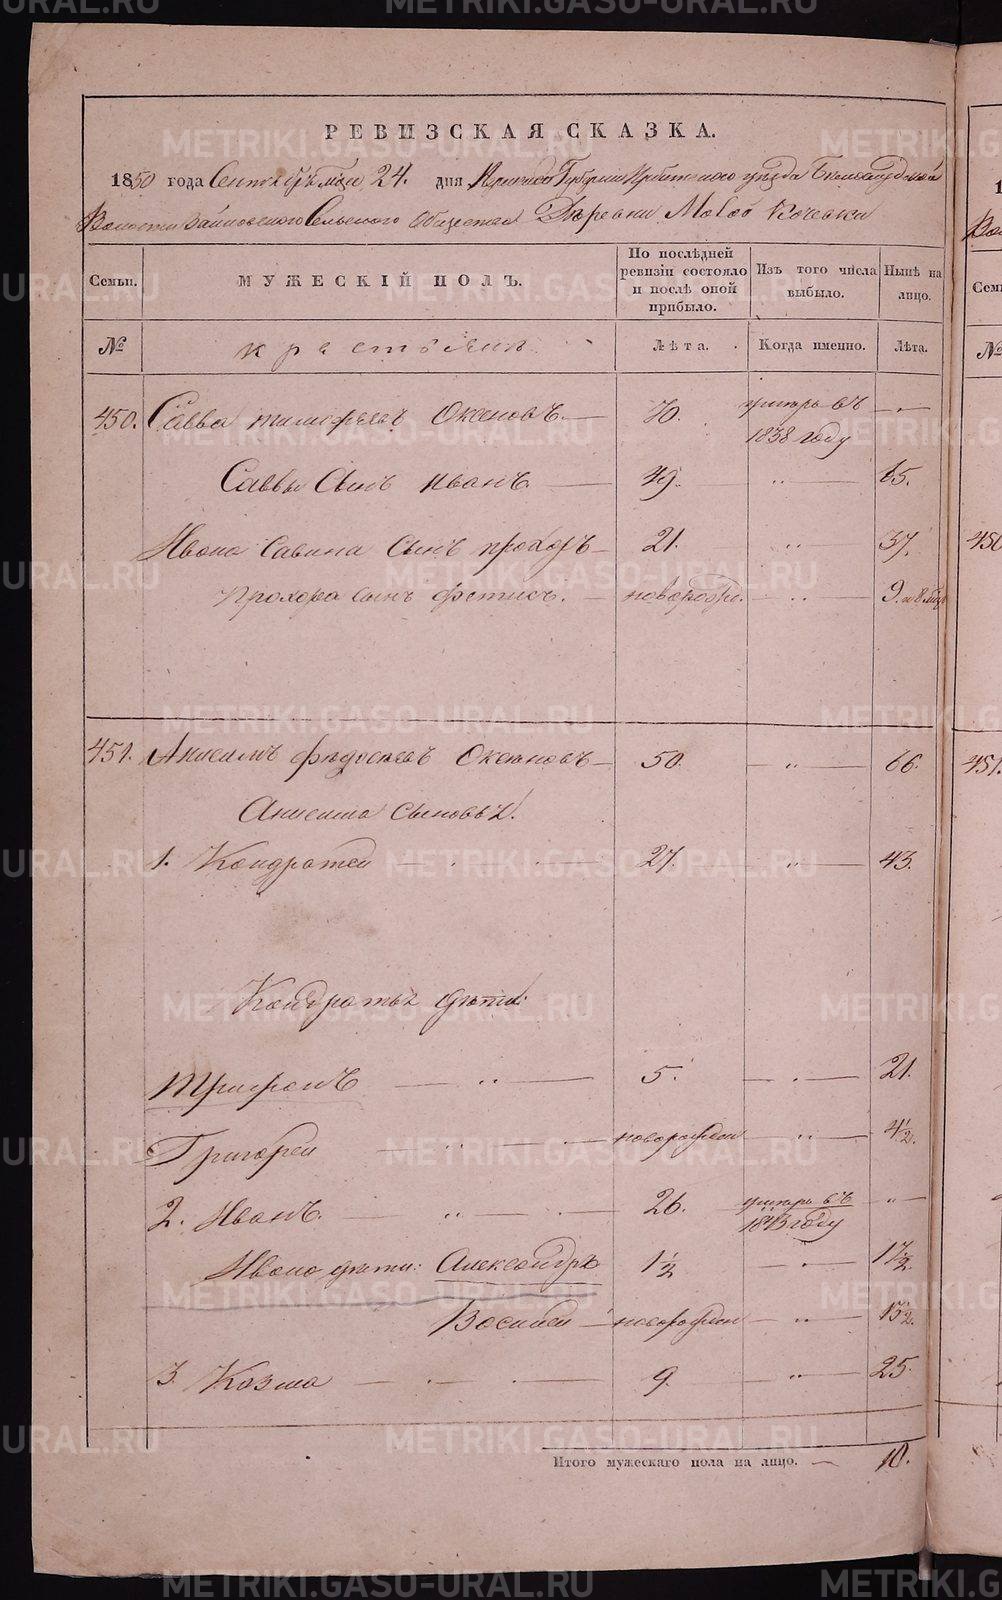 РЕВИЗСКАЯ СКАЗКА.
1850 года Сентября м-ца 24. дня Пермской Губернии Ирбитского уезда Белослудской
Волости Зайковского Сельского Общества Деревни Малой Кочевки
Семьи. МУЖЕСКІЙ ПОЛЪ. По послѣдней ревизіи состояло и послѣ оной прибыло. Изъ того числа выбыло. Нынѣ на лицо.
№ крестьяне Лѣта. Когда именно. Лѣта.
450. Савва тимофеевъ Оксеновъ 70. умеръ въ 1838 году
Саввы Сынъ иванъ 49. 65.
Ивана Савина Сынъ прохоръ 21. 37.
Прохора сынъ фетисъ. новорожд. 9. и 8 мцъ
451. Анисимъ федосеевъ Оксеновъ 50. 66.
Анисима сыновья.
1. Кондратей 27. 43.
Кондратья дети:
Трифонъ 5. 21.
Григорей новорожден 4½.
2. Иванъ. 26. умеръ въ 1843 году
Ивана дети: Александръ 1½ 17½.
Василей новорожден 15½.
3. Козма 9. 25.
Итого мужескаго пола на лицо. 10.
1
Во
Семь
№
450
451.
METRIKI.GASO-URAL.RU